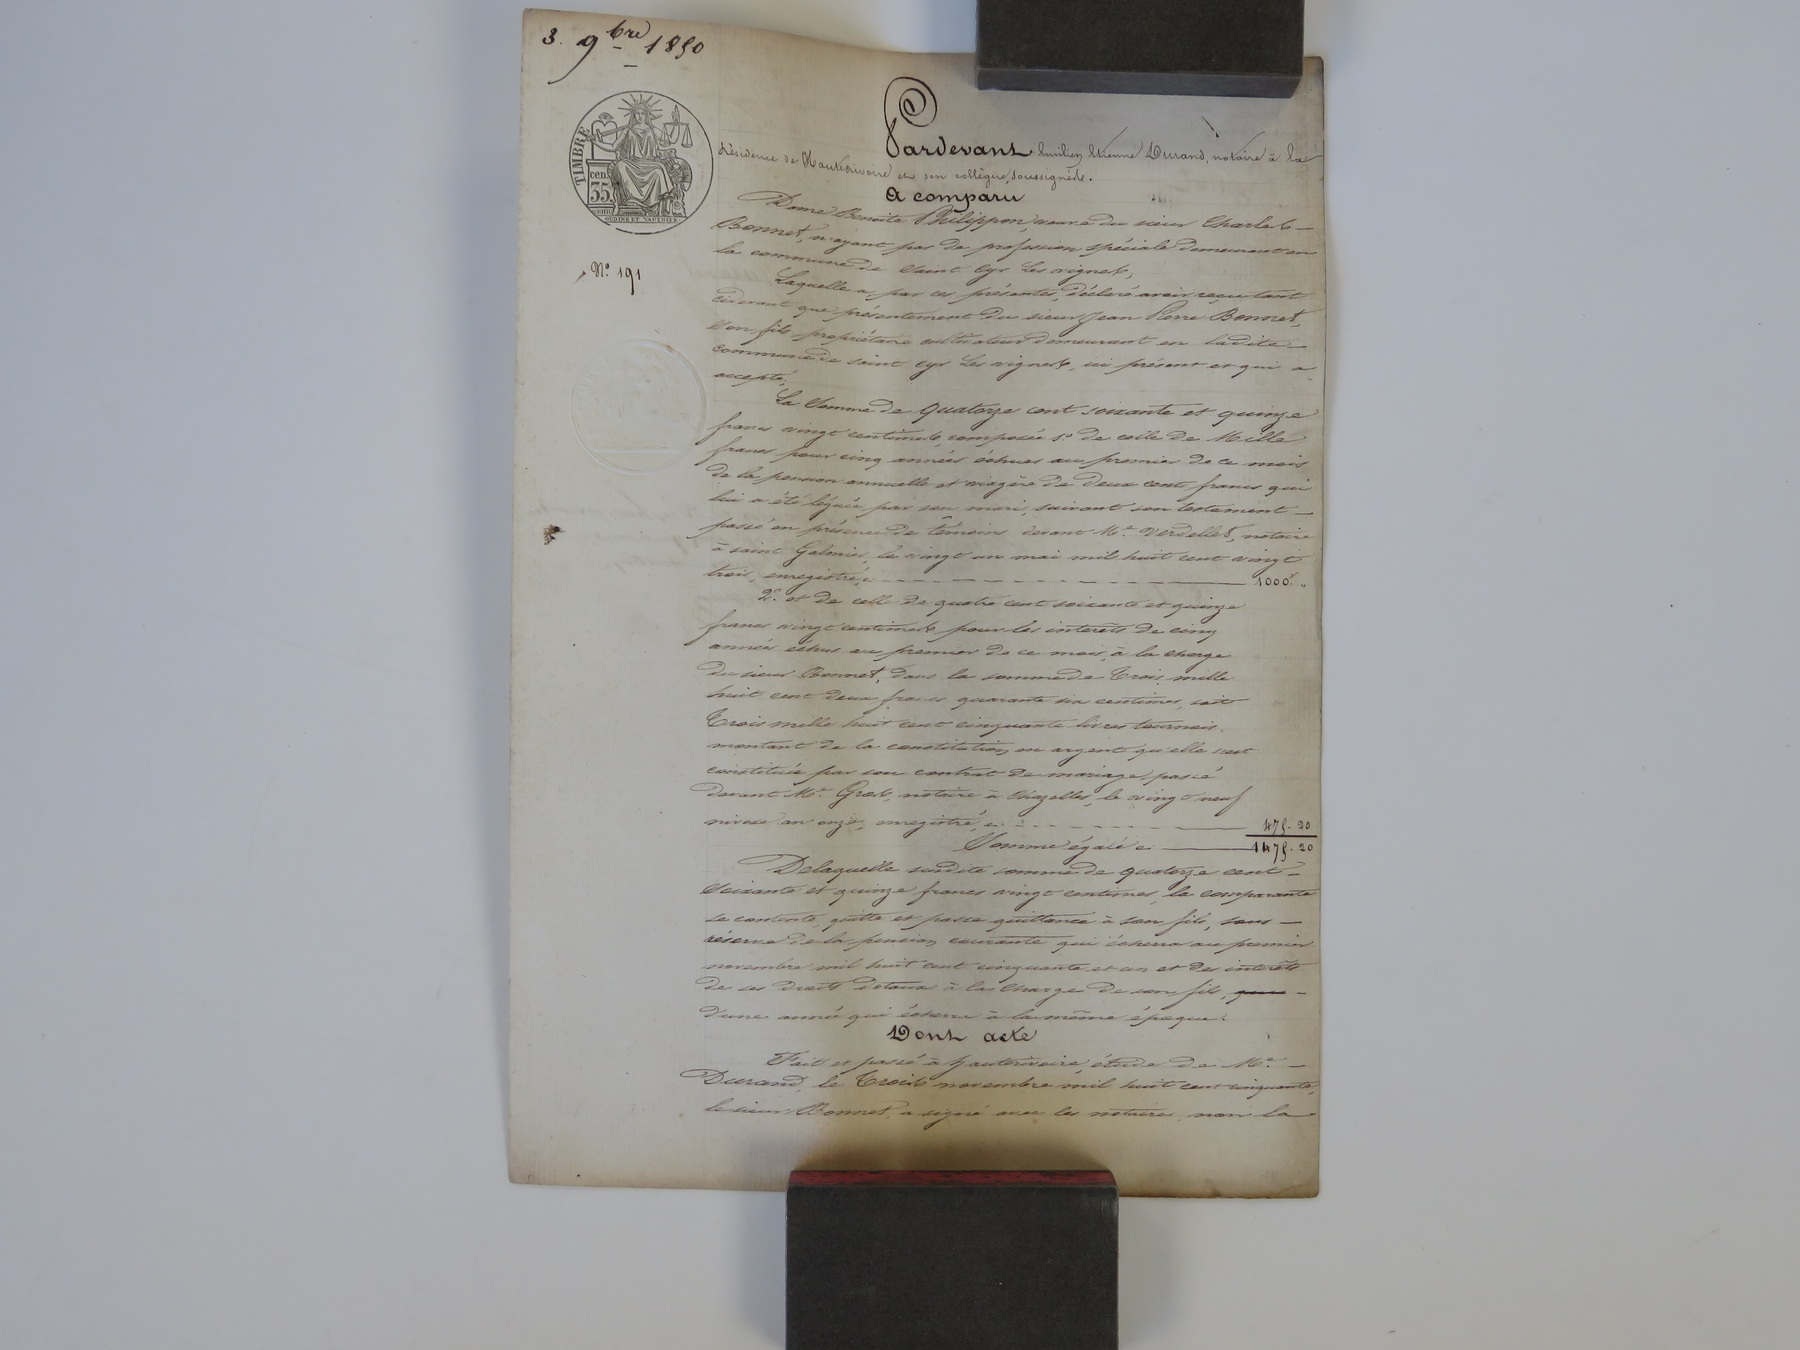 3. 9bre 1850
TIMBRE
cen.
35
N° 191
Pardevant Emilien Etienne Durand, notaire à la
résidence de Hauterivoire et son collègue, soussignés.
A comparu
Dame Benoite Philippon, veuve du sieur Charles
Bonnet, n'ayant pas de profession spéciale demeurant en
la commune de Saint Cyr Les vignes,
Laquelle a, par ces présentes, déclaré avoir reçu tant
cidevant que présentement du sieur Jean Pierre Bonnet,
Son fils propriétaire cultivateur demeurant en ladite
commune de saint Cyr Les vignes, ici présent et qui a
accepté,
La Somme de Quatorze cent soixante et quinze
francs vingt centimes, composée 1° de celle de Mille
francs pour cinq années échues au premier de ce mois
de la pension annuelle et viagère de deux cent francs qui
lui a été léguée par son mari, suivant son testament
passé en présence de témoins devant Me Verdellet, notaire
à saint Galmier, le vingt un mai mil huit cent vingt
trois, enregistré, ci 1000f "
2° et de celle de quatre cent soixante et quinze
francs vingt centimes pour les intérêts de cinq
années échus au premier de ce mois, à la charge
du sieur Bonnet, dans la somme de Trois mille
huit cent deux francs quarante six centimes, soit
Trois mille huit cent cinquante livres tournois,
montant de la constitution en argent qu'elle s'est
constituée par son contrat de mariage, passé
devant Me Gros, notaire à Chazelles, le vingt neuf
nivose an onze, enregistré, ci 475. 20
Somme égale 1475. 20
De laquelle susdite somme de quatorze cent
Soixante et quinze francs vingt centimes, la comparante
se contente, quitte et passe quittance à son fils, sous
réserve de la pension courante qui écherra au premier
novembre mil huit cent cinquante et un et des intérêts
de ses droits dotaux à la charge de son fils,
d'une année qui écherra à la même époque.
Dont acte
Fait et passé à hauterivoire, étude de Me
Durand, le Trois novembre mil huit cent cinquante,
le sieur Bonnet, a signé avec les notaires, non la